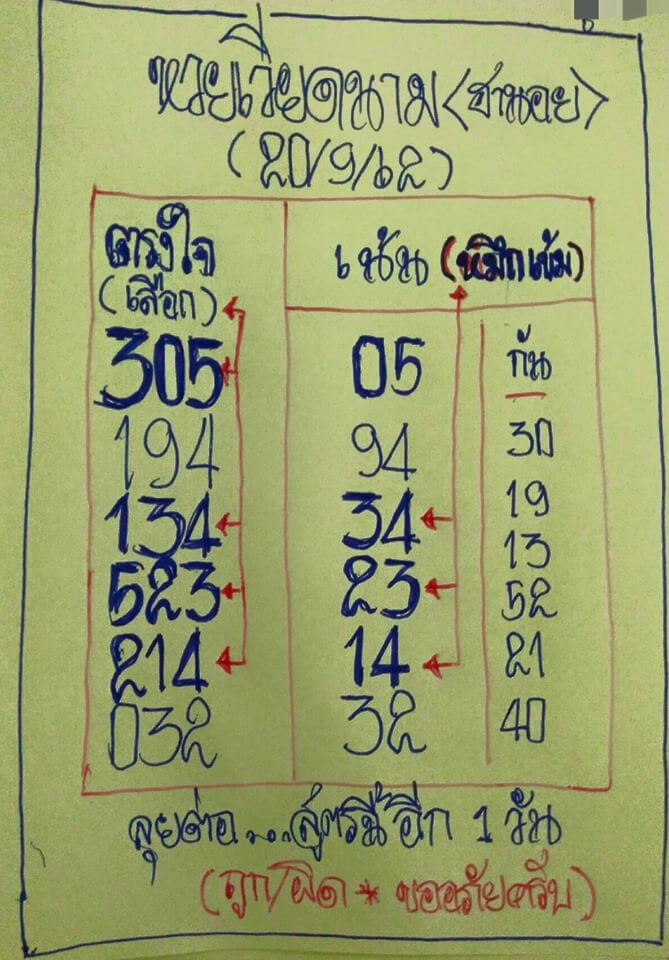 หวยเวียดนาม <ฮานอย>
(20/9/62)
ตรงใจ
(เลือก)
เน้น (หมึกเข้ม)
กัน
305 05 30
194 94 19
134 34 13
523 23 52
214 14 21
032 32 40
ลุยต่อ....สูตรนี้ อีก 1 วัน
(ถูก/ผิด * ขออภัยครับ)